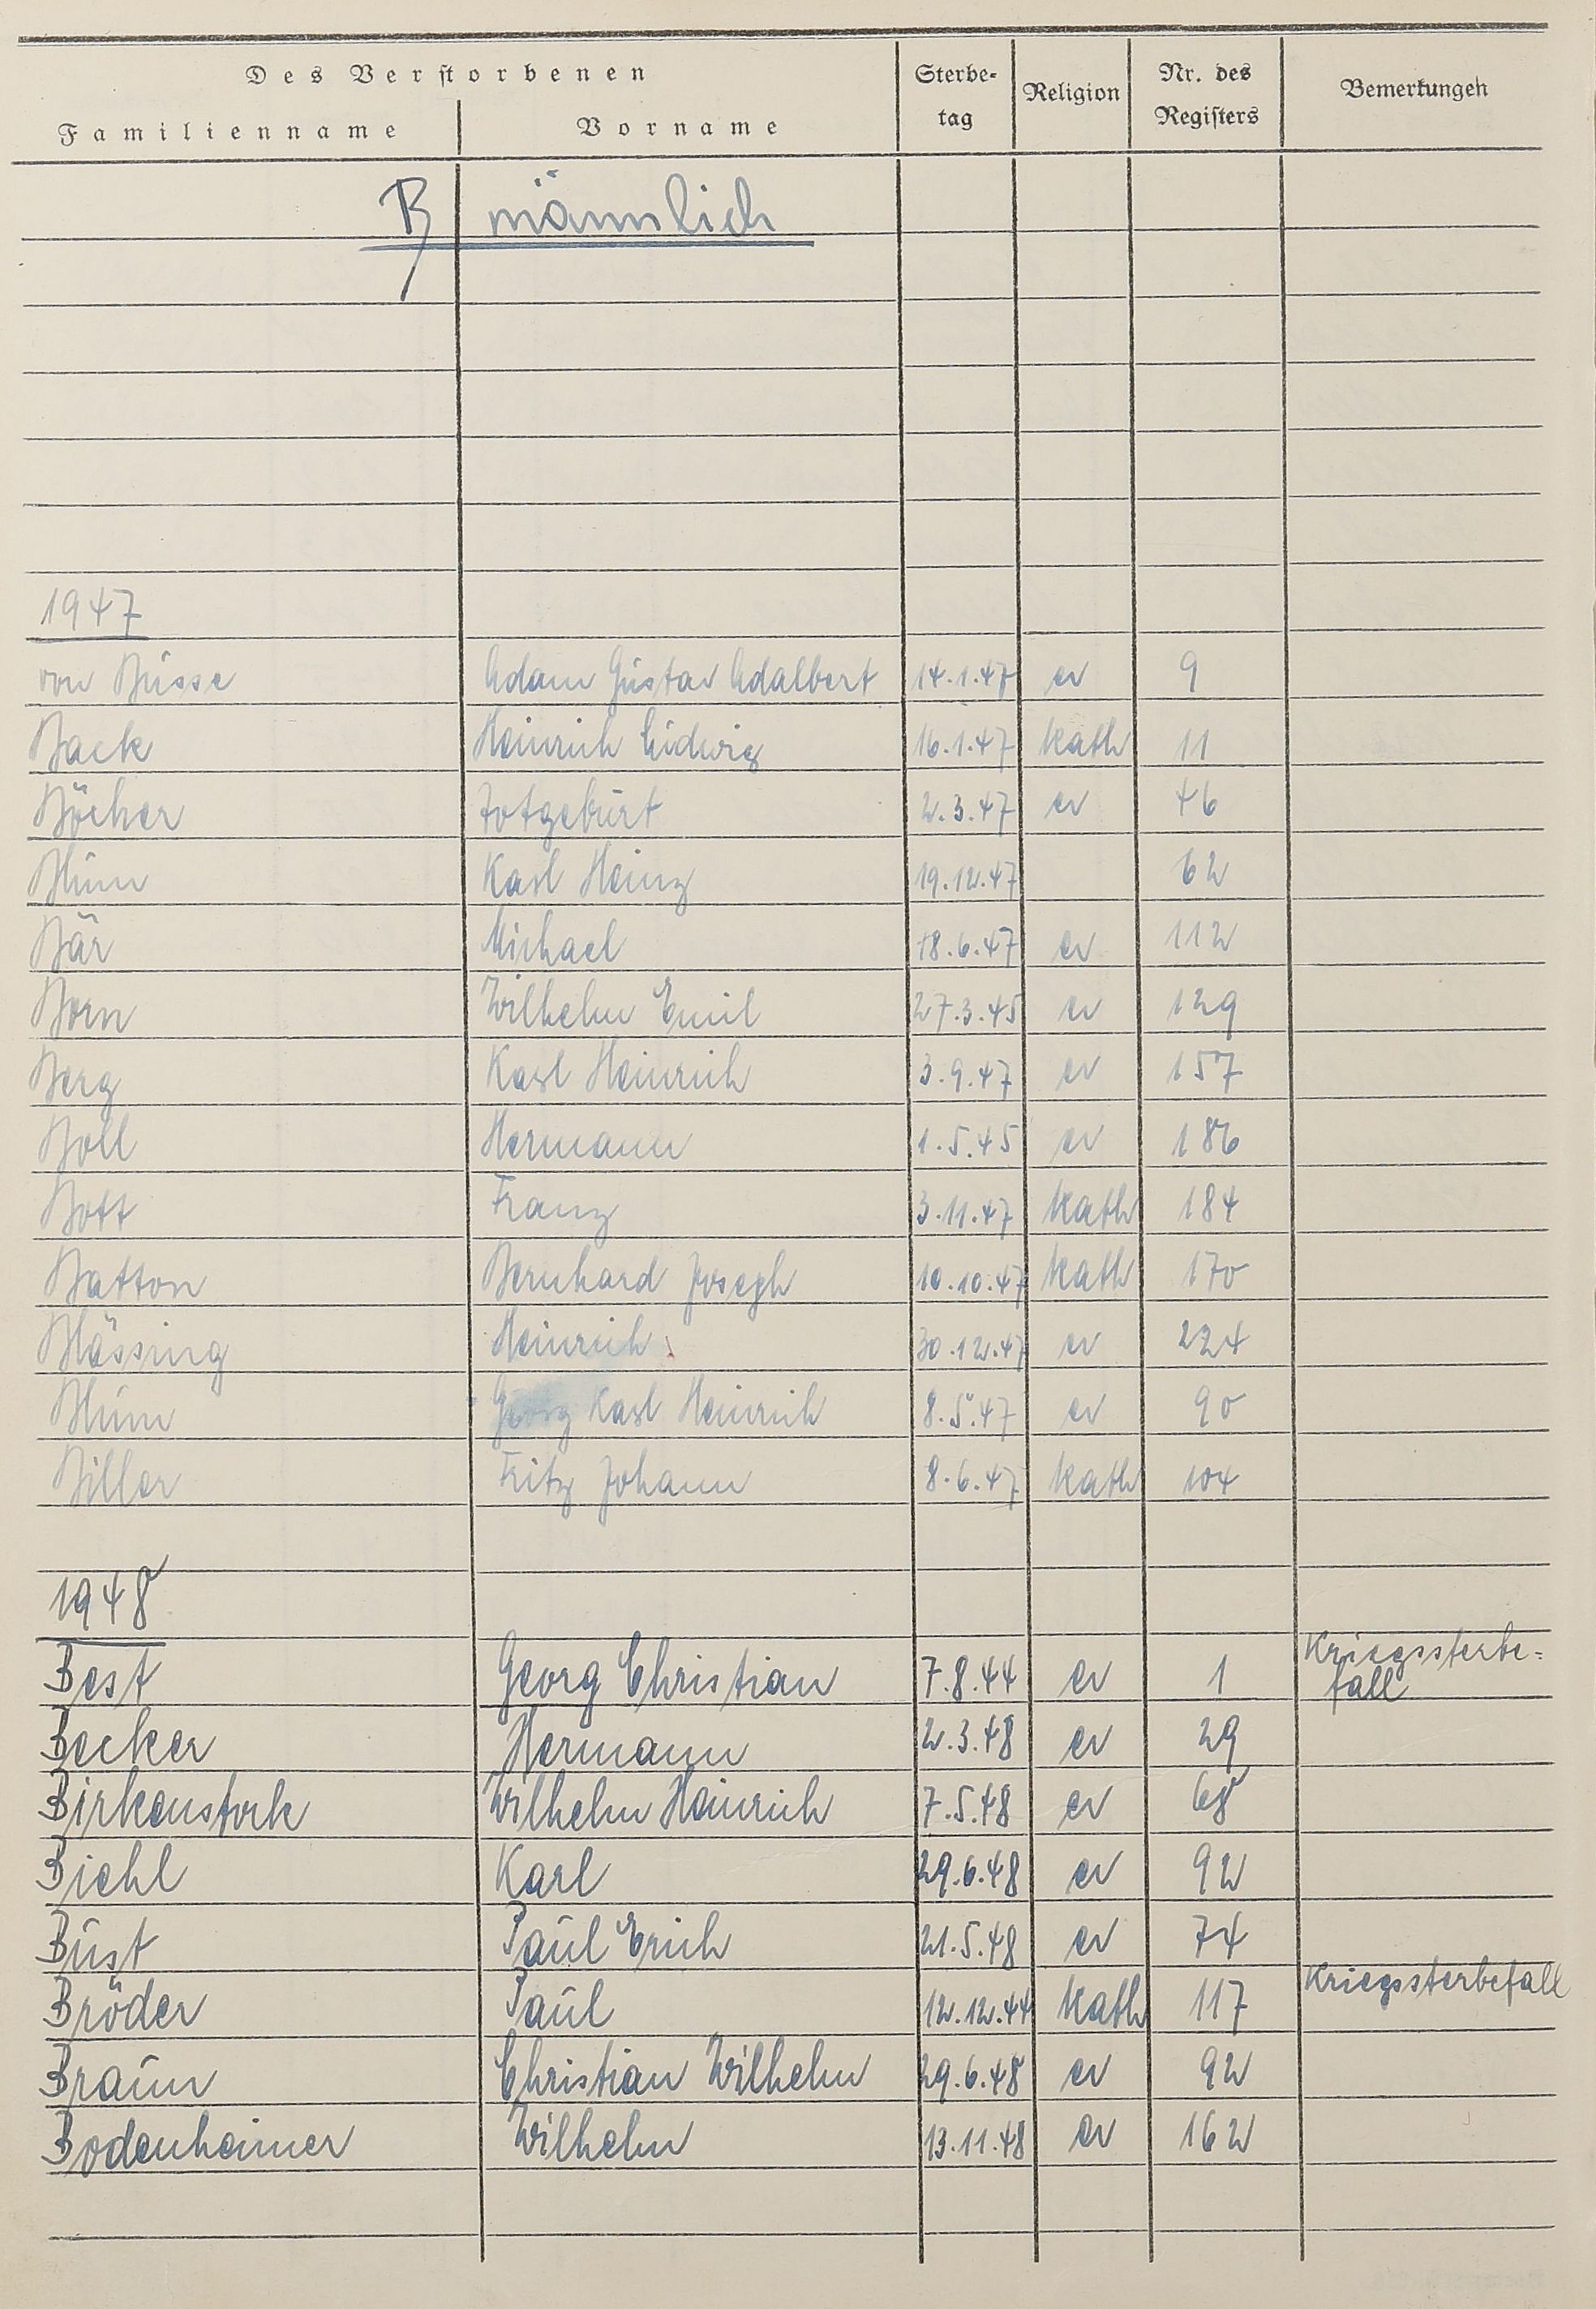 Des Verstorbenen
Familienname Vorname Sterbe-tag Religion Nr. des Registers Bemerkungen
B männlich
1947
von Busse Adam Gustav Adalbert 14.1.47 ev 9
Back Heinrich Ludwig 16.1.47 kath 11
Böcher Totgeburt 2.3.47 ev 46
Blum Karl Heinz 19.12.47 62
Bär Michael 18.6.47 ev 112
Born Wilhelm Emil 27.3.45 ev 129
Berg Karl Heinrich 3.9.47 ev 157
Boll Hermann 1.5.45 ev 186
Bott Franz 3.11.47 kath 184
Batton Bernhard Joseph 10.10.47 kath 170
Blässing Heinrich 30.12.47 ev 224
Blum Georg Karl Heinrich 8.5.47 ev 90
Biller Fritz Johann 8.6.47 kath 104
1948
Best Georg Christian 7.8.44 ev 1 Kriegssterbe=fall
Becker Hermann 2.3.48 ev 29
Birkenstock Wilhelm Heinrich 7.5.48 ev 68
Biehl Karl 29.6.48 ev 92
Bust Paul Erich 21.5.48 ev 74
Bröder Paul 12.12.44 kath 117 Kriegssterbefall
Braun Christian Wilhelm 29.6.48 ev 92
Bodenheimer Wilhelm 13.11.48 ev 162